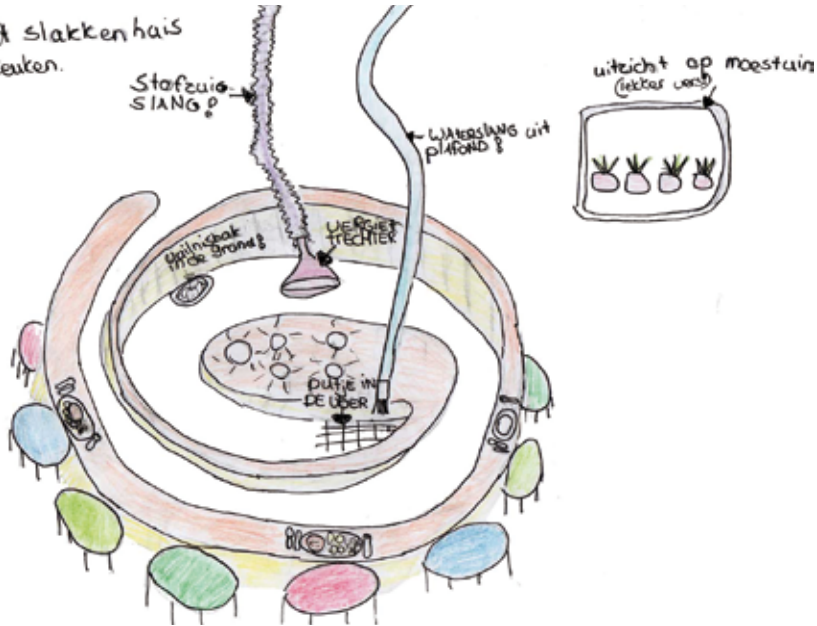 t slakkenhuis
euken.
Stofzuig
SLANG!
WATERSLANG uit
plafond!
uitzicht op moestuin
(lekker vers!)
Vuilnisbak
in de grond!
VERGIET
TRECHTER
putje in
DE VLOER